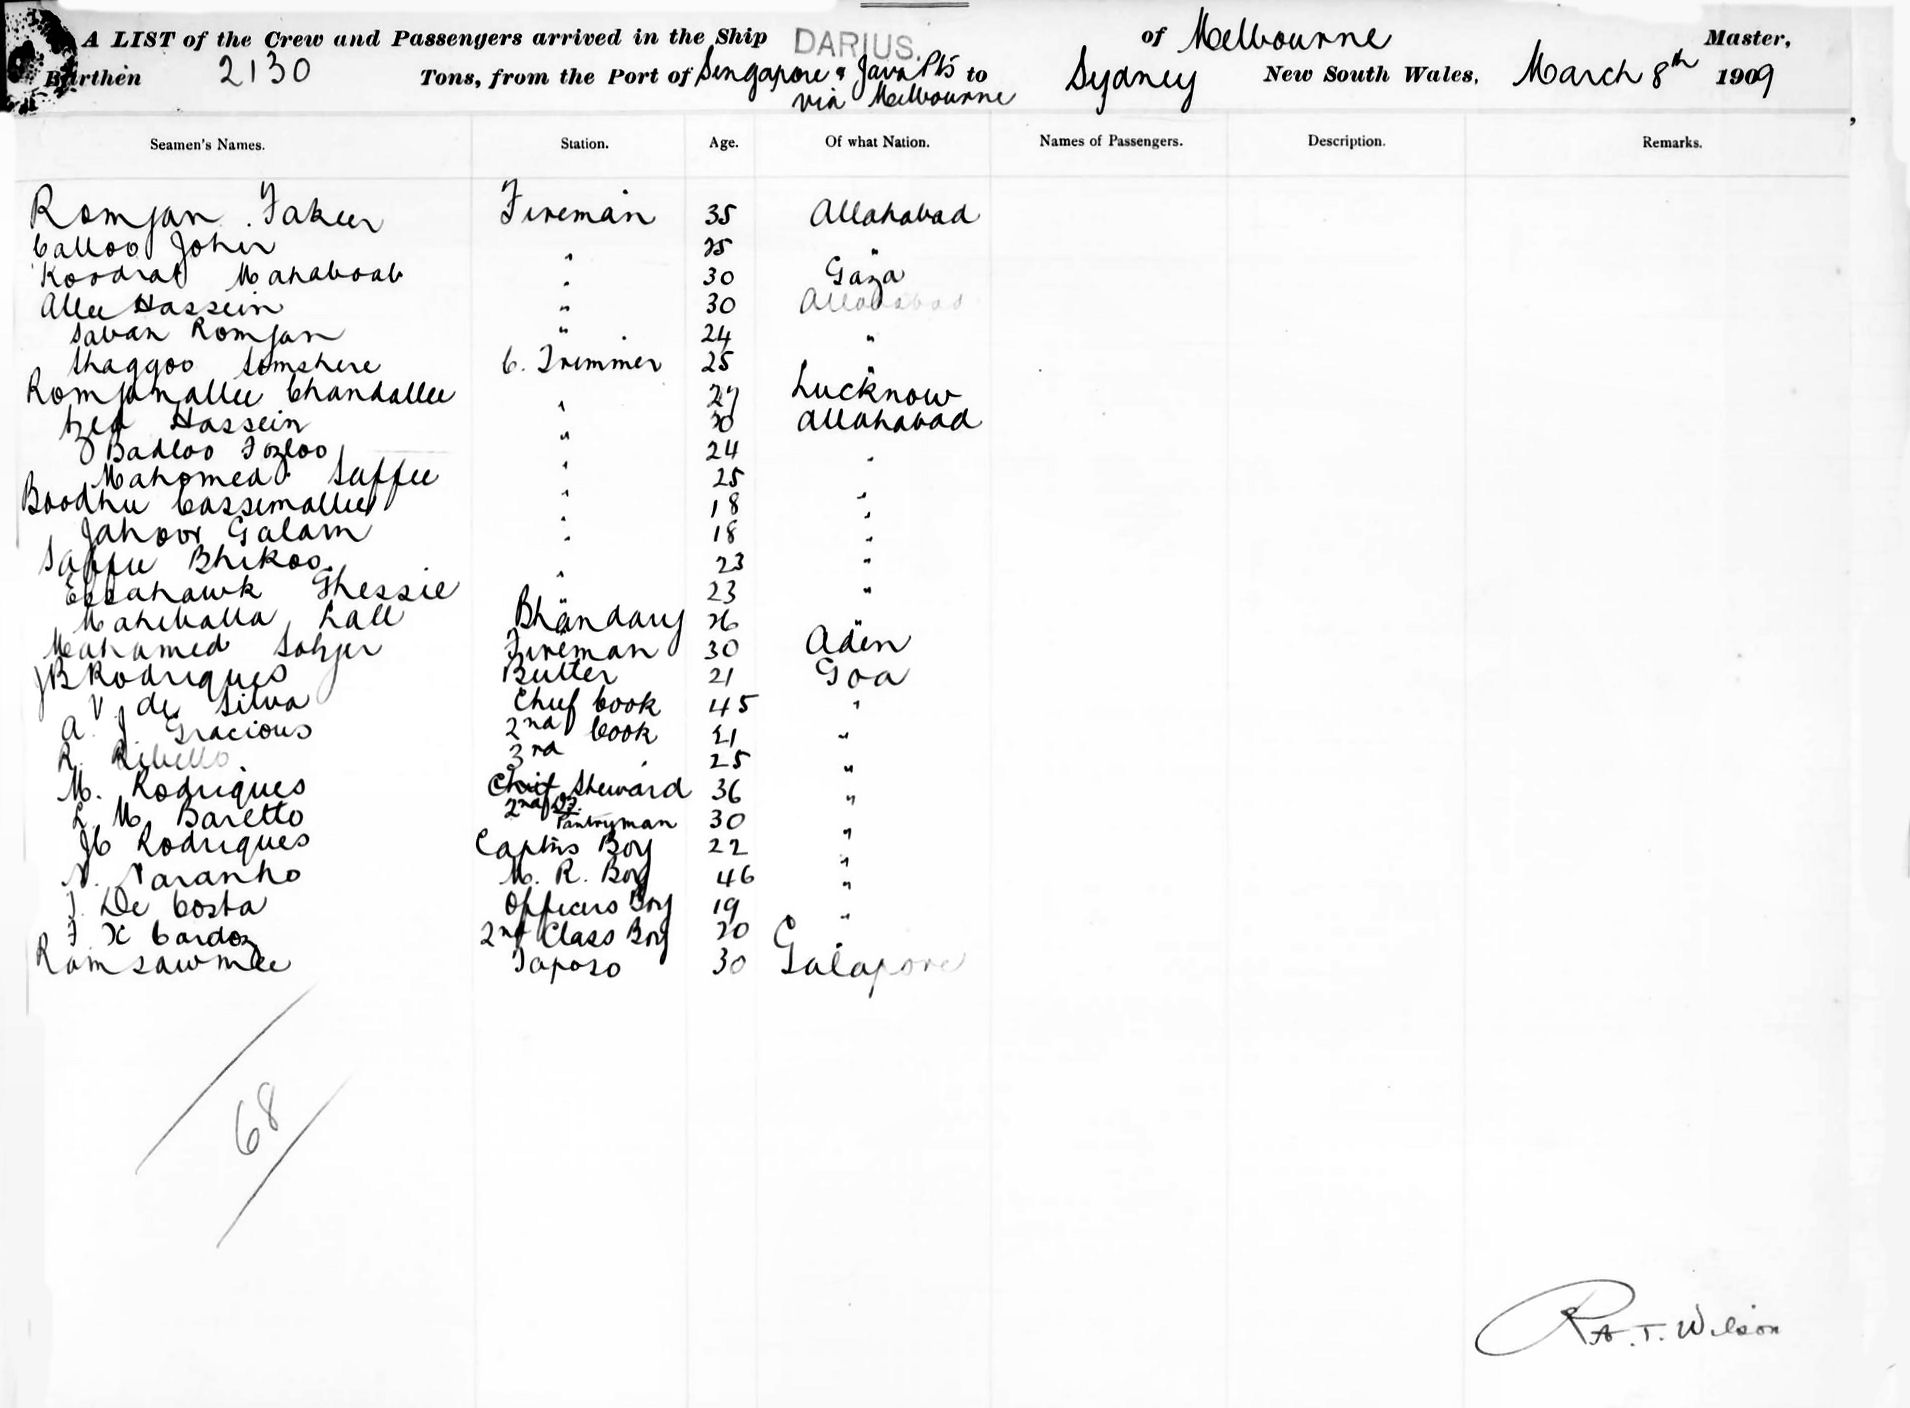 A LIST of the Crew and Passengers arrived in the Ship DARIUS. of Melbourne Master,
Burthen 2130 Tons, from the Port of Singapore & Java Pts to Sydney New South Wales, March 8th 1909
via Melbourne
Seamen's Names. Station. Age. Of what Nation. Names of Passengers. Description. Remarks.
Romjan Fakir Fireman 35 Allahabad
Calloo John " "
Koodrat Mahaboob " 30 Gaza
Allee Hassein " 30 Allahabad
Saban Romjan " 24 "
Shaggoo Somshere C. Trimmer 25 "
Romjanallee Chandallee " 27 Lucknow
Hassein " 30 Allahabad
Badloo Fozloo " 24 "
Mahomed Suffee " 25 "
Boodhu Cassimallee " 18 "
Jahoor Galam " 18 "
Saffu Bhikoo " 23 "
Essahawk Ghessie " 23 "
Lall Bhandary 26 "
Mahamed Fireman 30 Aden
JB Rodriques Butler 21 Goa
V. de Silva Chief Cook 45 "
A. J. Gracious 2nd Cook 21 "
R. Ribello. 3rd " 25 "
M. Rodriques Chief Steward 36 "
L. M. Baretto 2nd Do. Pantryman 30 "
JC Rodriques Captns Boy 22 "
N. Naranho M. R. Boy 46 "
J. De Costa Officers Boy 19 "
F X Cardoz 2nd Class Boy 20 "
Ramsawmee Topaso 30
68
T. Wilson